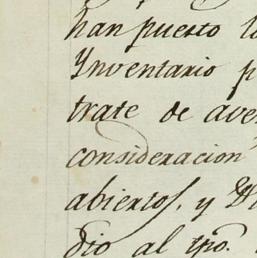 han puesto l
Ynventario p
trate de ave
consideracion
abiertos, y
dio al tpo.